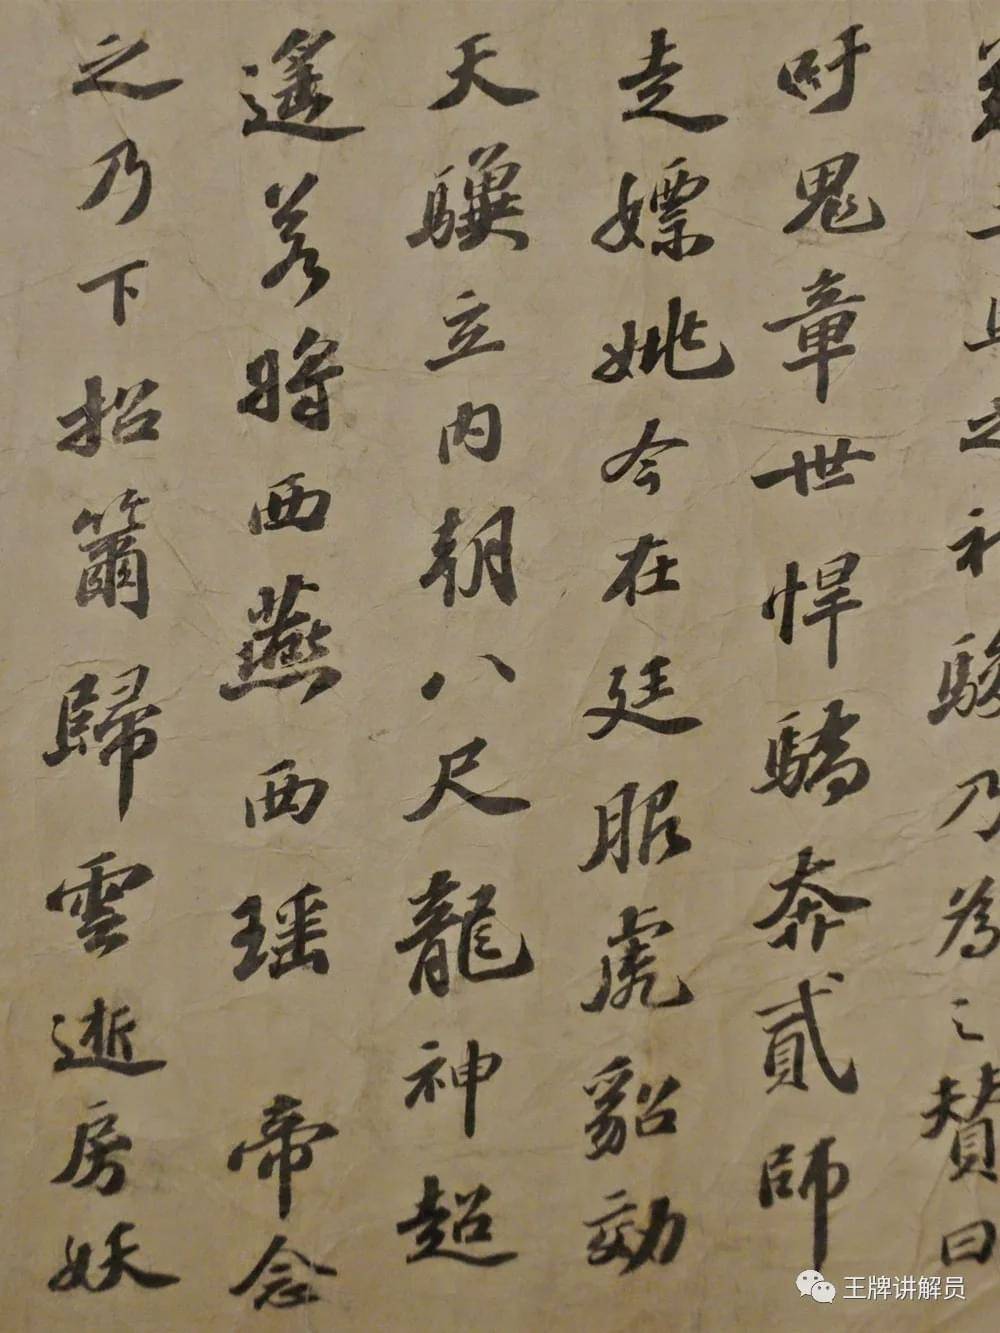 之神駿乃為之贊曰
吁鬼章世悍驕奔貳師
走嫖姚今在廷服虎貂効
天驥立內朝八尺龍神超
遙若將西燕西瑤帝念
之乃下招籋歸雲逝房妖
王牌讲解员